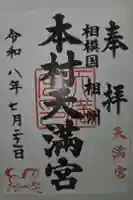 奉拝
相模国 相州
本村天満宮
天満宮
令和八年七月二十一日